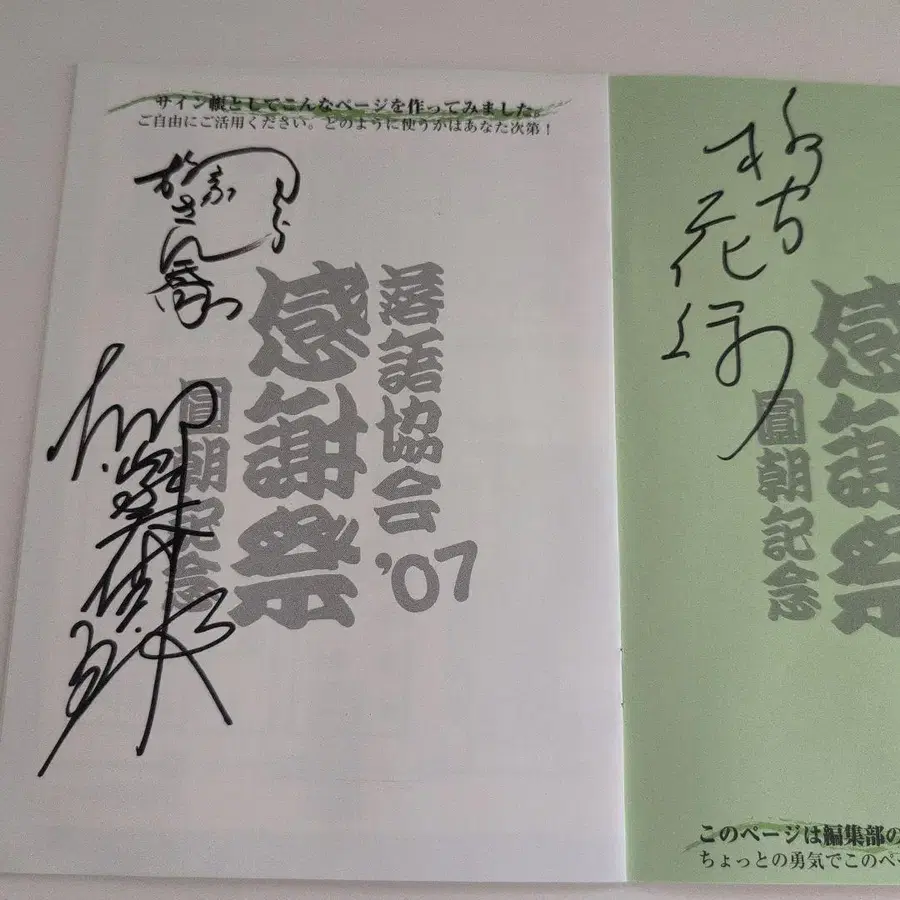 サイン帳としてこんなページを作ってみました。
ご自由にご活用ください。どのように使うかはあなた次第！
落語協会'07
感謝祭
圓朝記念
柳家花緑
感謝祭
圓朝記念
このページは編集部の
ちょっとの勇気でこのペー